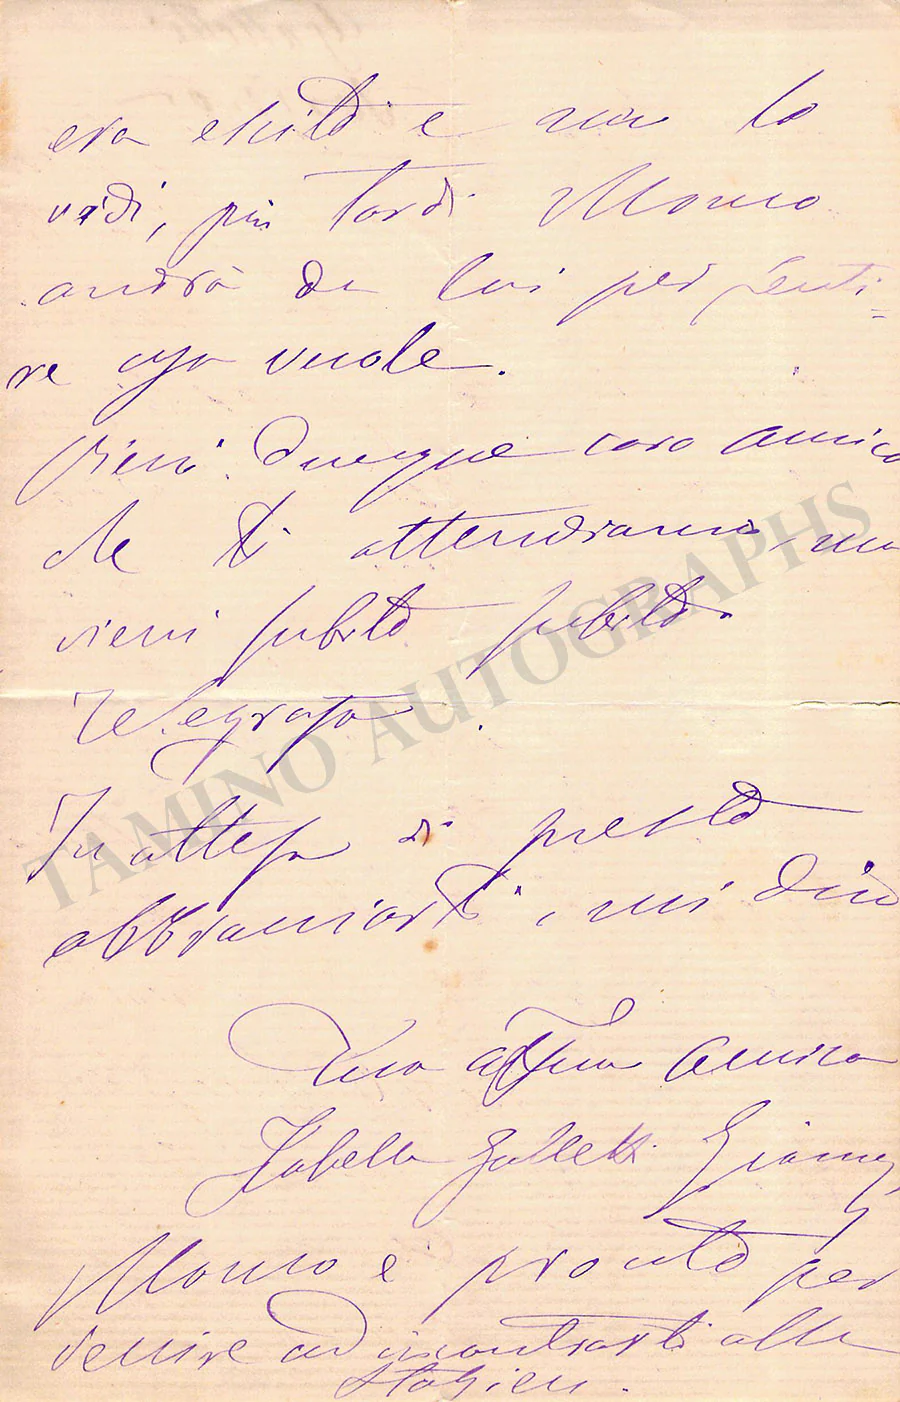 era escito e non lo
vidi, più tardi Monco
andrà da lui per senti=
re cosa vuole.
Vieni dunque caro amico
che ti attendiamo, ma
vieni subito subito.
Telegrafa.
In attesa di presto
abbracciarti, mi dico
Tua affma amica
Isabella Galletti Gianoli
Monco è pronto per
venire ad incontrarti alla
Stazion.
TAMINO AUTOGRAPHS